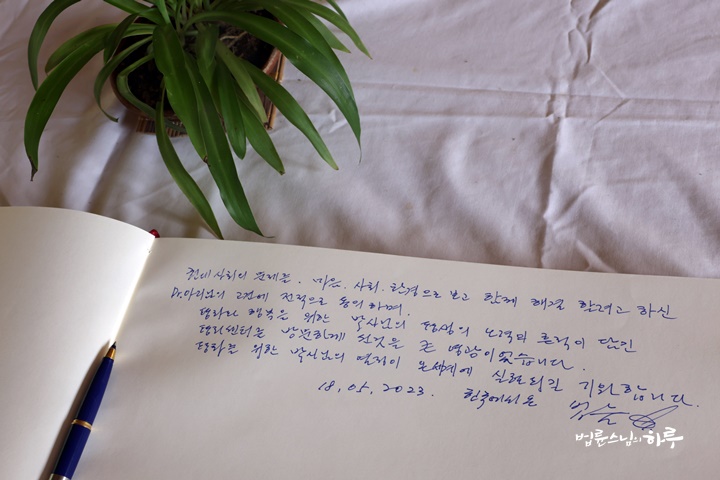 현대사회의 문제를. 마음. 사회. 환경으로 보고 함께 해결 할려고 하신
Dr.아리님의 고견에 전적으로 동의하며.
행복을 위한 박사님의 평생의 노력과 흔적이 담긴
센터를 방문하게 된것을 큰 영광이었습니다.
평화를 위한 박사님의 열정이 온세계에 실현되길 기원합니다.
18, 05, 2023. 한국에서온 법륜
법륜스님의하루